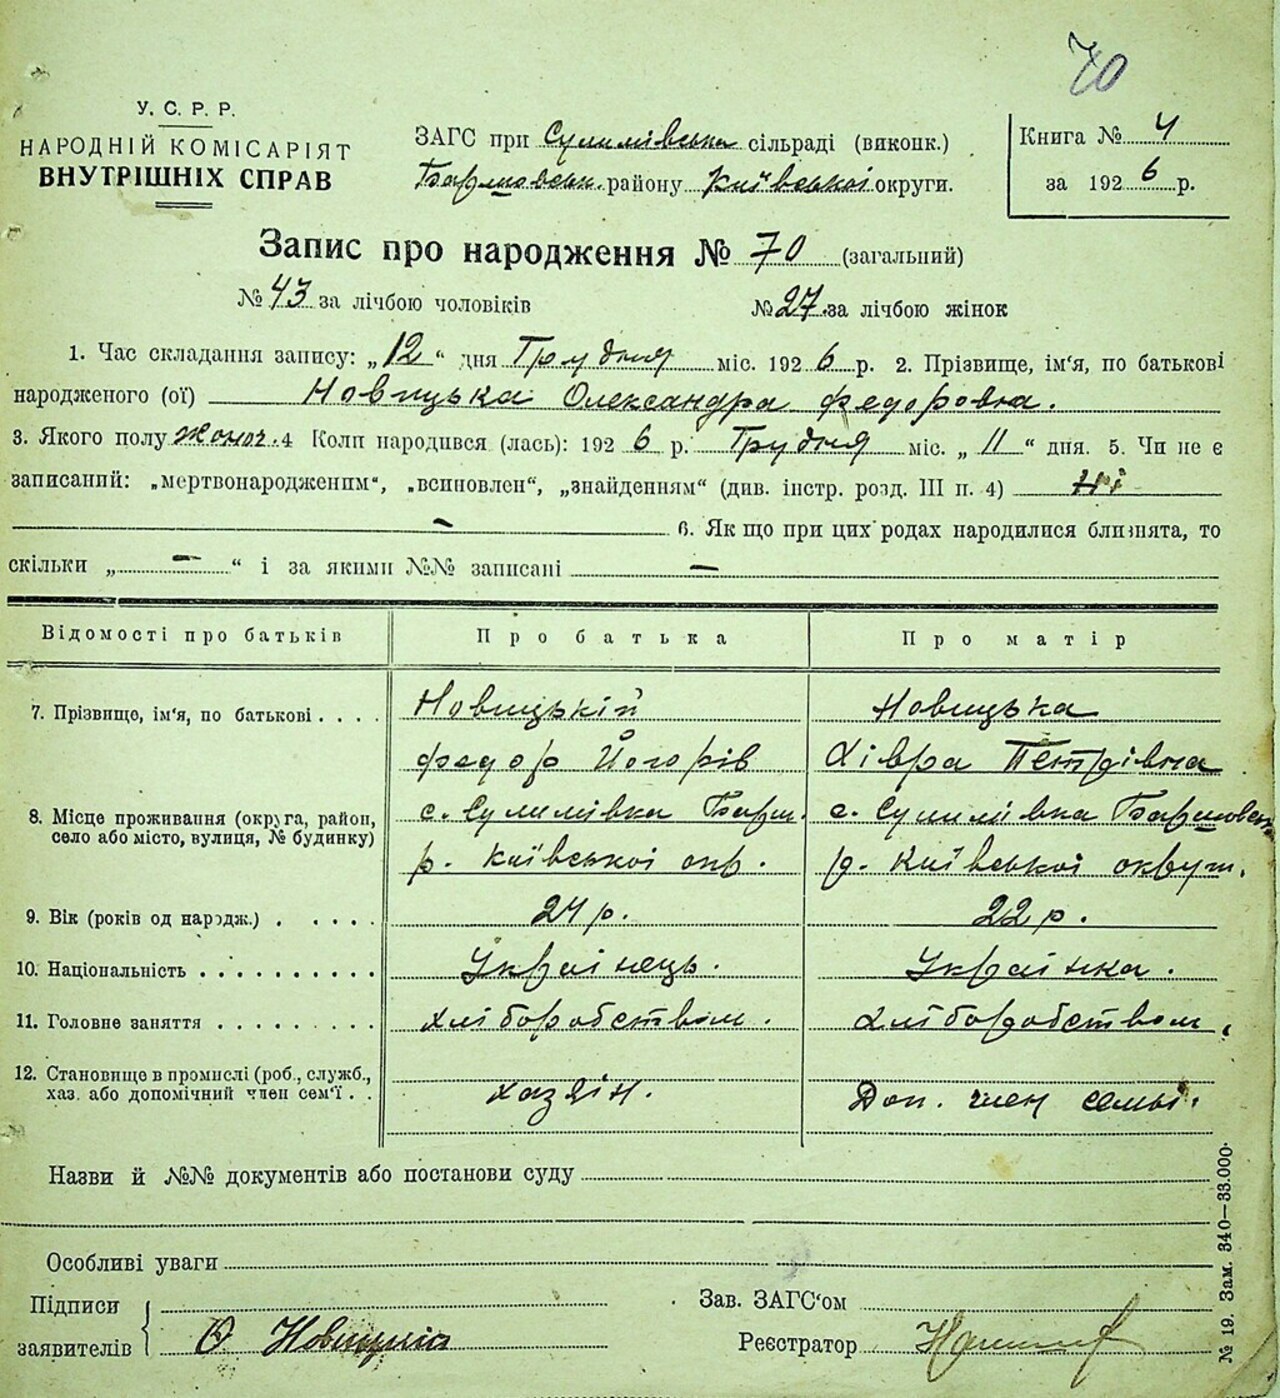 70
У. С. Р. Р.
НАРОДНІЙ КОМІСАРІЯТ
ВНУТРІШНІХ СПРАВ
ЗАГС при Сулимівська сільраді (виконк.)
Баришовськ. району Київської округи.
Книга № 4
за 1926 р.
Запис про народження № 70 (загальний)
№ 43 за лічбою чоловіків
№ 27 за лічбою жінок
1. Час складання запису: „12“ дня Грудня міс. 1926 р. 2. Прізвище, ім‘я, по батькові
народженого (ої) Новицька Олександра Федоровна.
3. Якого полу жоноч. 4 Коли народився (лась): 1926 р. Грудня міс. „11“ дня. 5. Чи не є
записаний: „мертвонародженим“, „всиновлен“, „знайденням“ (див. інстр. розд. III п. 4) Ні
— 6. Як що при цих родах народилися близнята, то
скільки „—“ і за якими №№ записані —
Відомості про батьків Про батька Про матір
7. Прізвище, ім‘я, по батькові . . . . Новицькій Новицька
Федор Йогорів Хівра Петрівна
8. Місце проживання (округа, район, село або місто, вулиця, № будинку) с. Сулимівка Бариш. с. Сулимівка Баришовськ
р. Київської окр. р. Київської округи.
9. Вік (років од народж.) . . . . . 24 р. 22 р.
10. Національність . . . . . . . . . . Українець. Українка.
11. Головне заняття . . . . . . . . . хліборобством. хліборобством.
12. Становище в промислі (роб., служб.,
хаз. або допомічний член сем‘ї . . хазяїн. Доп. член семьі.
Назви й №№ документів або постанови суду
Особливі уваги
Підписи
заявителів Ф Новицкий
Зав. ЗАГС‘ом
Реєстратор
№ 19. Зам. 340—33.000.